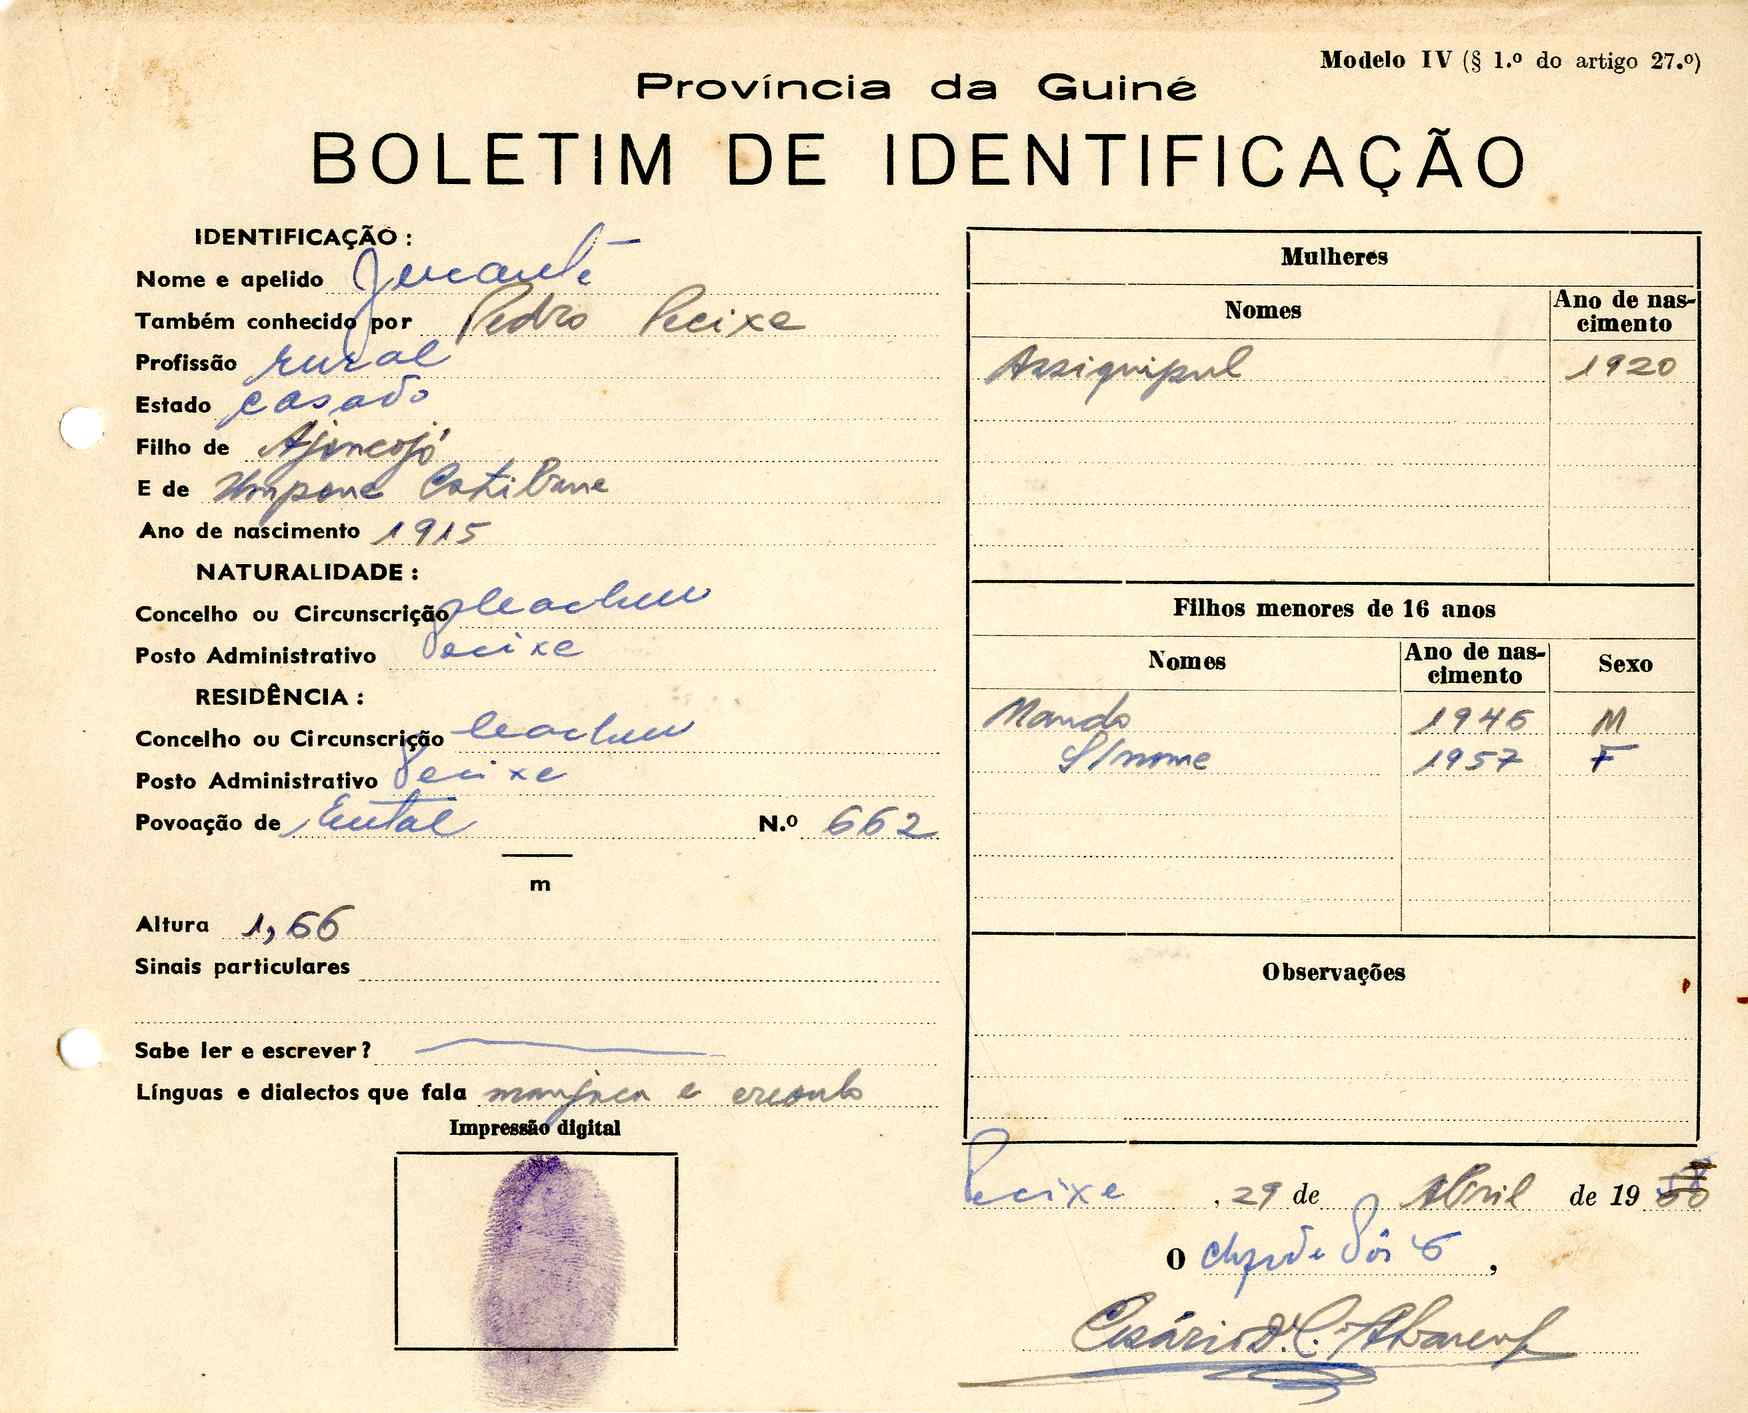 Modelo IV (§ 1.º do artigo 27.º)
Província da Guiné
BOLETIM DE IDENTIFICAÇÃO
IDENTIFICAÇÃO :
Nome e apelido
Também conhecido por Pedro Pecixe
Profissão rural
Estado casado
Filho de Ajincojó
E de Umpone Catibane
Ano de nascimento 1915
NATURALIDADE :
Concelho ou Circunscrição Cacheu
Posto Administrativo Pecixe
RESIDÊNCIA :
Concelho ou Circunscrição Cacheu
Posto Administrativo Pecixe
Povoação de N.º 662
m
Altura 1,66
Sinais particulares
Sabe ler e escrever ?
Línguas e dialectos que fala manjaca e creoulo
Impressão digital
Mulheres
Nomes Ano de nas-
cimento
Assiquipul 1920
Filhos menores de 16 anos
Nomes Ano de nas-
cimento Sexo
Mando 1946 M
S/nome 1957 F
Observações
Pecixe, 29 de Abril de 19
O chefe de Pôsto,
Cesário D. C. Alvarenga